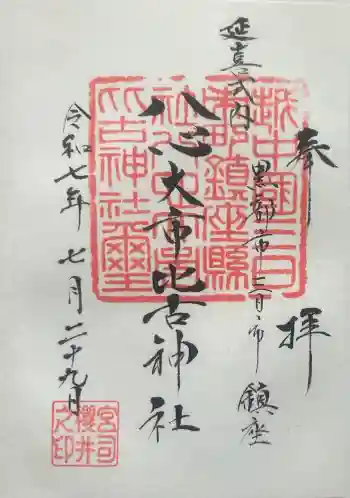 奉拝
延喜式内
黒部市三日市鎮座
八心大市比古神社
令和七年七月二十九日
越中國三日
市町鎮座縣
社八心大市
比古神社璽
宮司
櫻井
之印